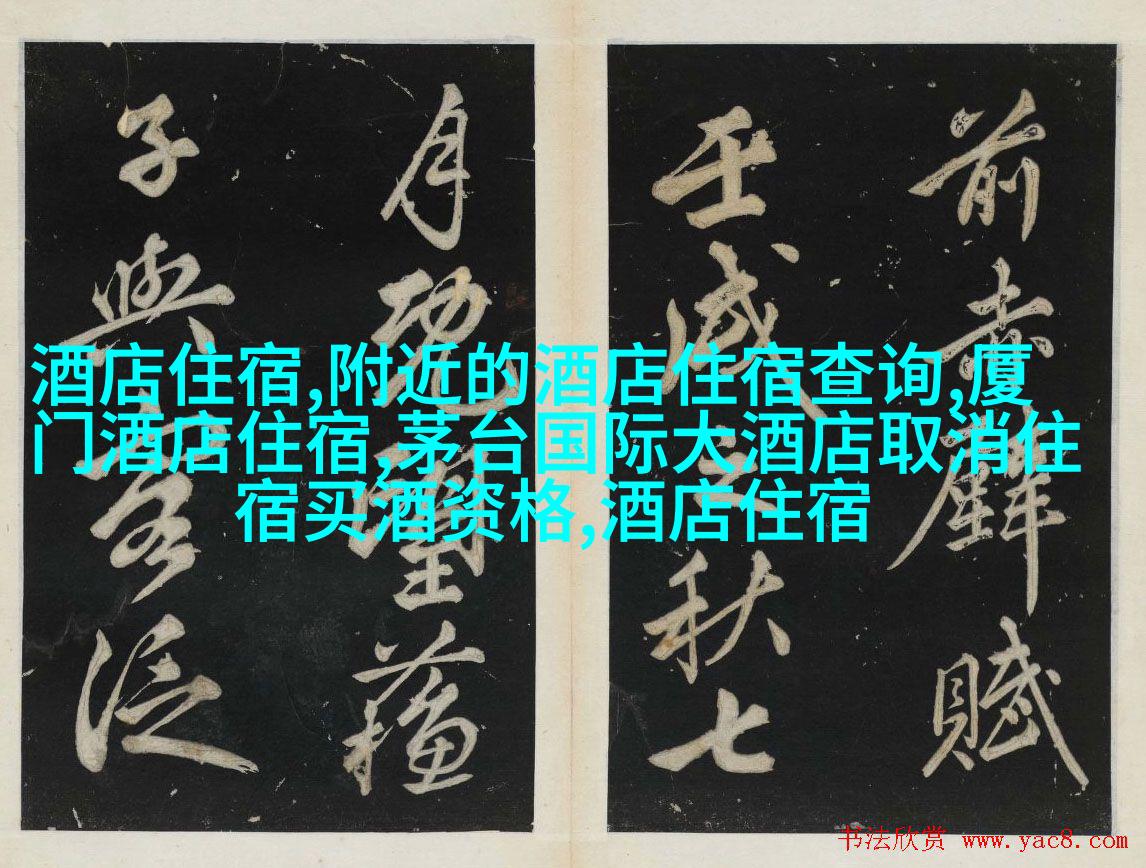 前赤壁賦
壬戌之秋七
月既望蘓
子與客泛
酒店住宿,附近的酒店住宿查询,厦
门酒店住宿,茅台国际大酒店取消住
宿买酒资格,酒店住宿
书法欣赏 www.yac8.com